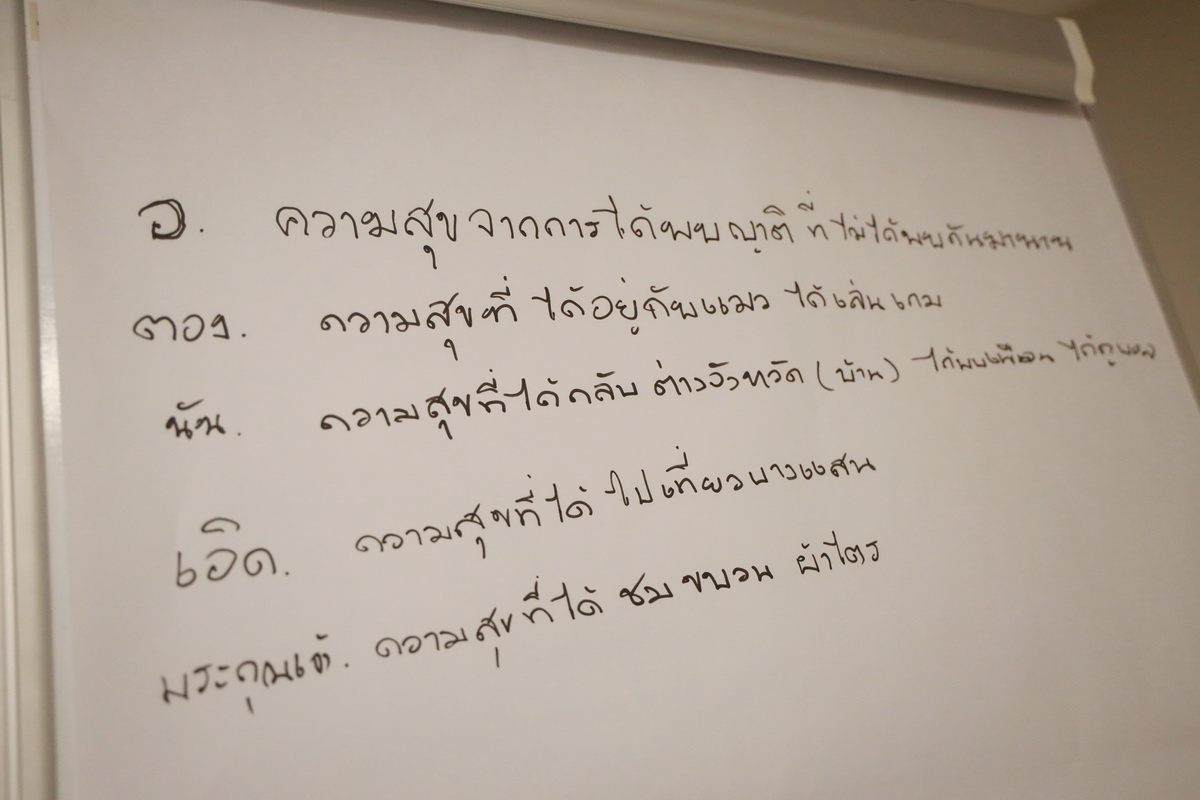 อ. ความสุขจากการได้พบญาติ ที่ไม่ได้พบกันมานาน
ตอง. ความสุขที่ ได้อยู่กับแมว ได้เล่นเกม
นัน. ความสุขที่ได้กลับ ต่างจังหวัด (บ้าน) ได้พบเพื่อน
เอิด. ความสุขที่ได้ ไปเที่ยวบางแสน
พระคุณเจ้. ความสุขที่ได้ ชมขบวน ผ้าไตร